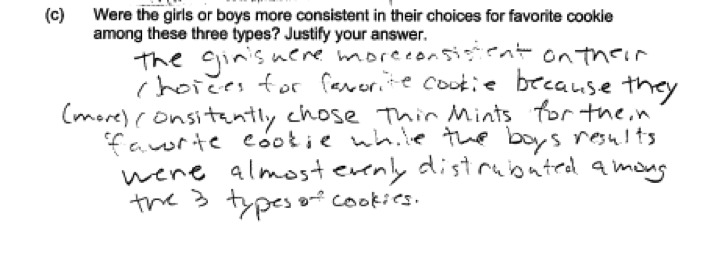 (c) Were the girls or boys more consistent in their choices for favorite cookie
among these three types? Justify your answer.
The girls were more consistent on their
choices for favorite cookie because they
(more) consitantly chose Thin Mints for their
favorite cookie while the boys results
were almost evenly distrubuted among
the 3 types of cookies.